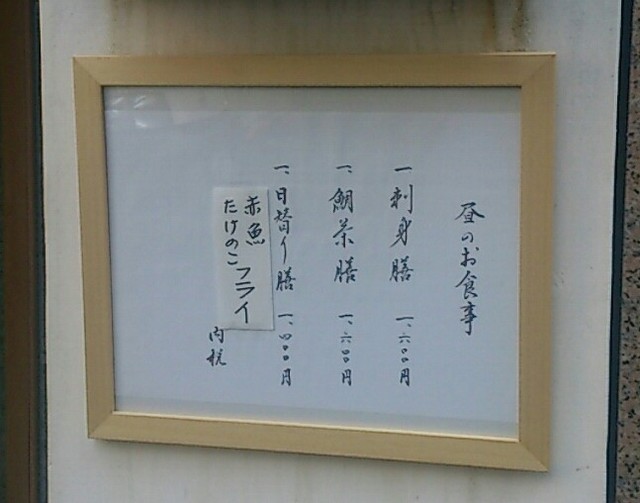 昼のお食事
一 刺身膳 一、六〇〇円
一、鯛茶膳 一、六〇〇円
一、日替り膳 一、四〇〇円
赤魚
たけのこフライ
内税